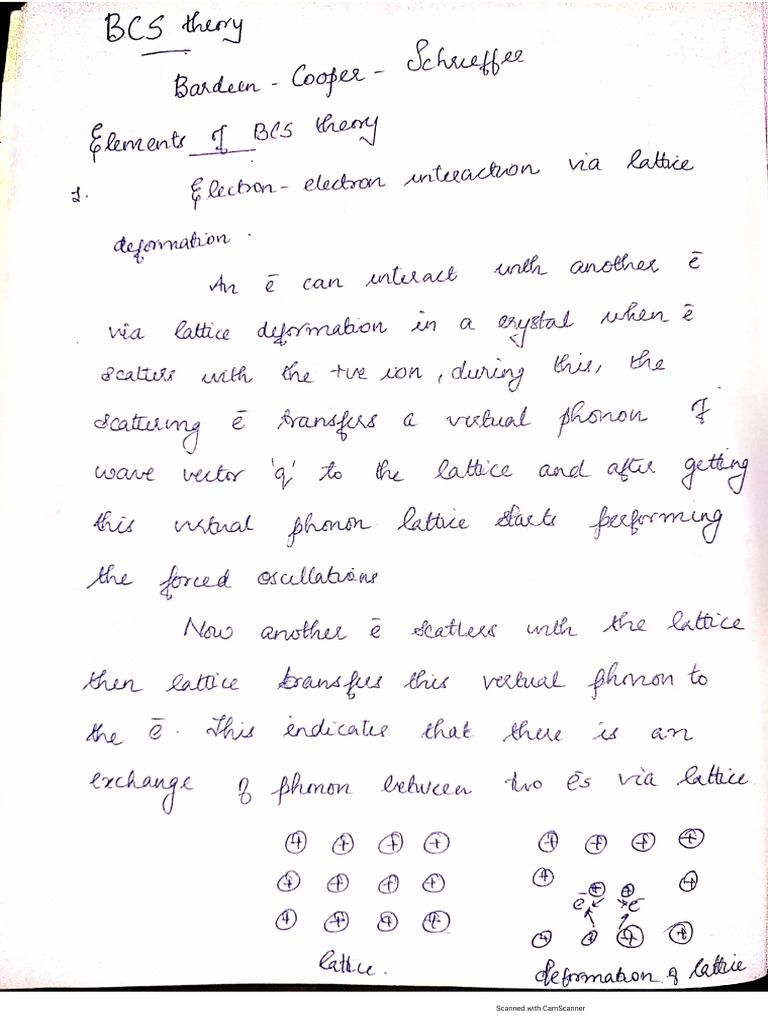 BCS theory
Bardeen - Cooper - Schrieffer
Elements of BCS theory
1. Electron - electron interaction via lattice
deformation.
An ē can interact with another ē
via lattice deformation in a crystal when ē
scatters with the +ve ion, during this, the
scattering ē transfers a virtual phonon of
wave vector 'q' to the lattice and after getting
this virtual phonon lattice starts performing
the forced oscillations
Now another ē scatters with the lattice
then lattice transfers this virtual phonon to
the ē. This indicates that there is an
exchange of phonon between two ēs via lattice
+ + + + + + + +
+ + + + + + + +
ē ē
+ + + + + + + +
lattice. deformation of lattice
Scanned with CamScanner